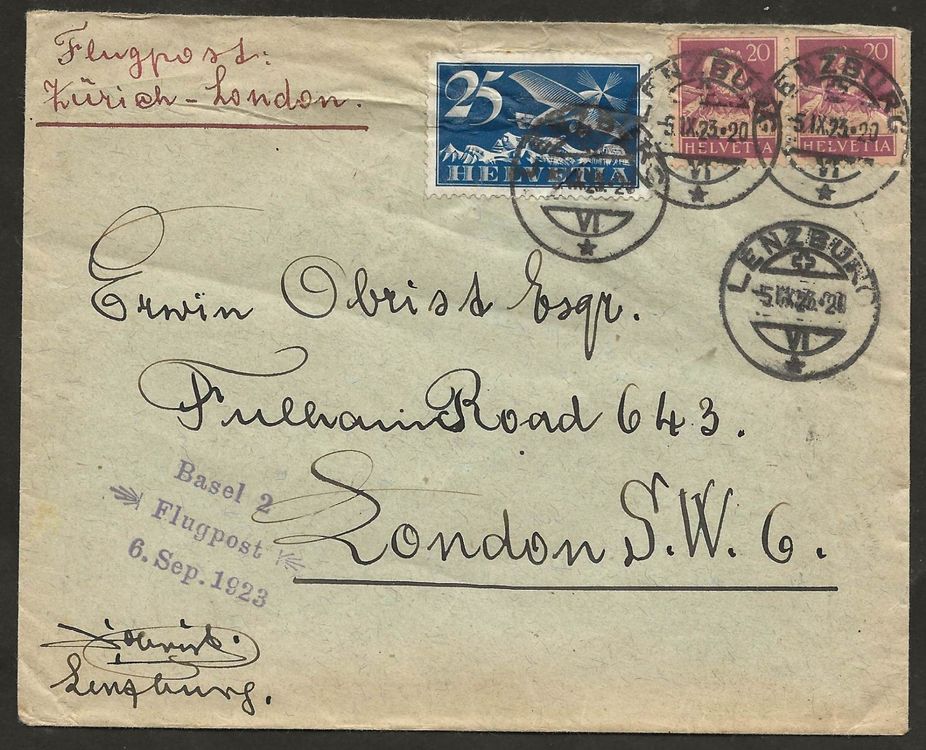 Flugpost:
Zürich - London.
25
HELVETIA
20
HELVETIA
20
HELVETIA
LENZBURG
-5.IX.23.-20
VI
LENZBURG
-5.IX.23.-20
VI
LENZBURG
-5.IX.23.-20
VI
LENZBURG
-5.IX.23.-20
VI
Erwin Obrist Esqr.
Fulham Road 643.
London S.W. 6.
Basel 2
Flugpost
6. Sep. 1923
Obrist.
Lenzburg.